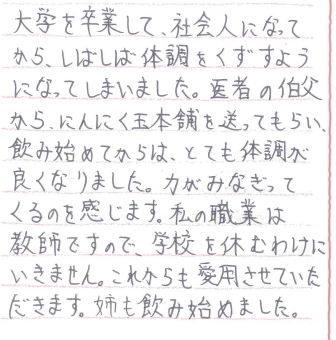 大学を卒業して、社会人になって
から、しばしば体調をくずすよう
になってしまいました。医者の伯父
から、にんにく玉本舗を送ってもらい、
飲み始めてからは、とても体調が
良くなりました。力がみなぎって
くるのを感じます。私の職業は
教師ですので、学校を休むわけに
いきません。これからも愛用させていた
だきます。姉も飲み始めました。